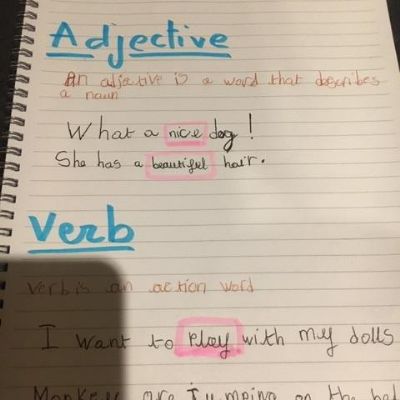 Adjective
An adjective is a word that describes
a noun
What a nice dog!
She has a beautiful hair.
Verb
Verb is an action word
I want to play with my dolls
Monkey are Jumping on the bed